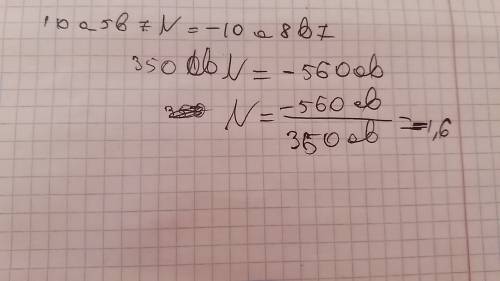 10a5b7N = -10a8b7
350abN = -560ab
N = -560ab / 350ab = -1,6